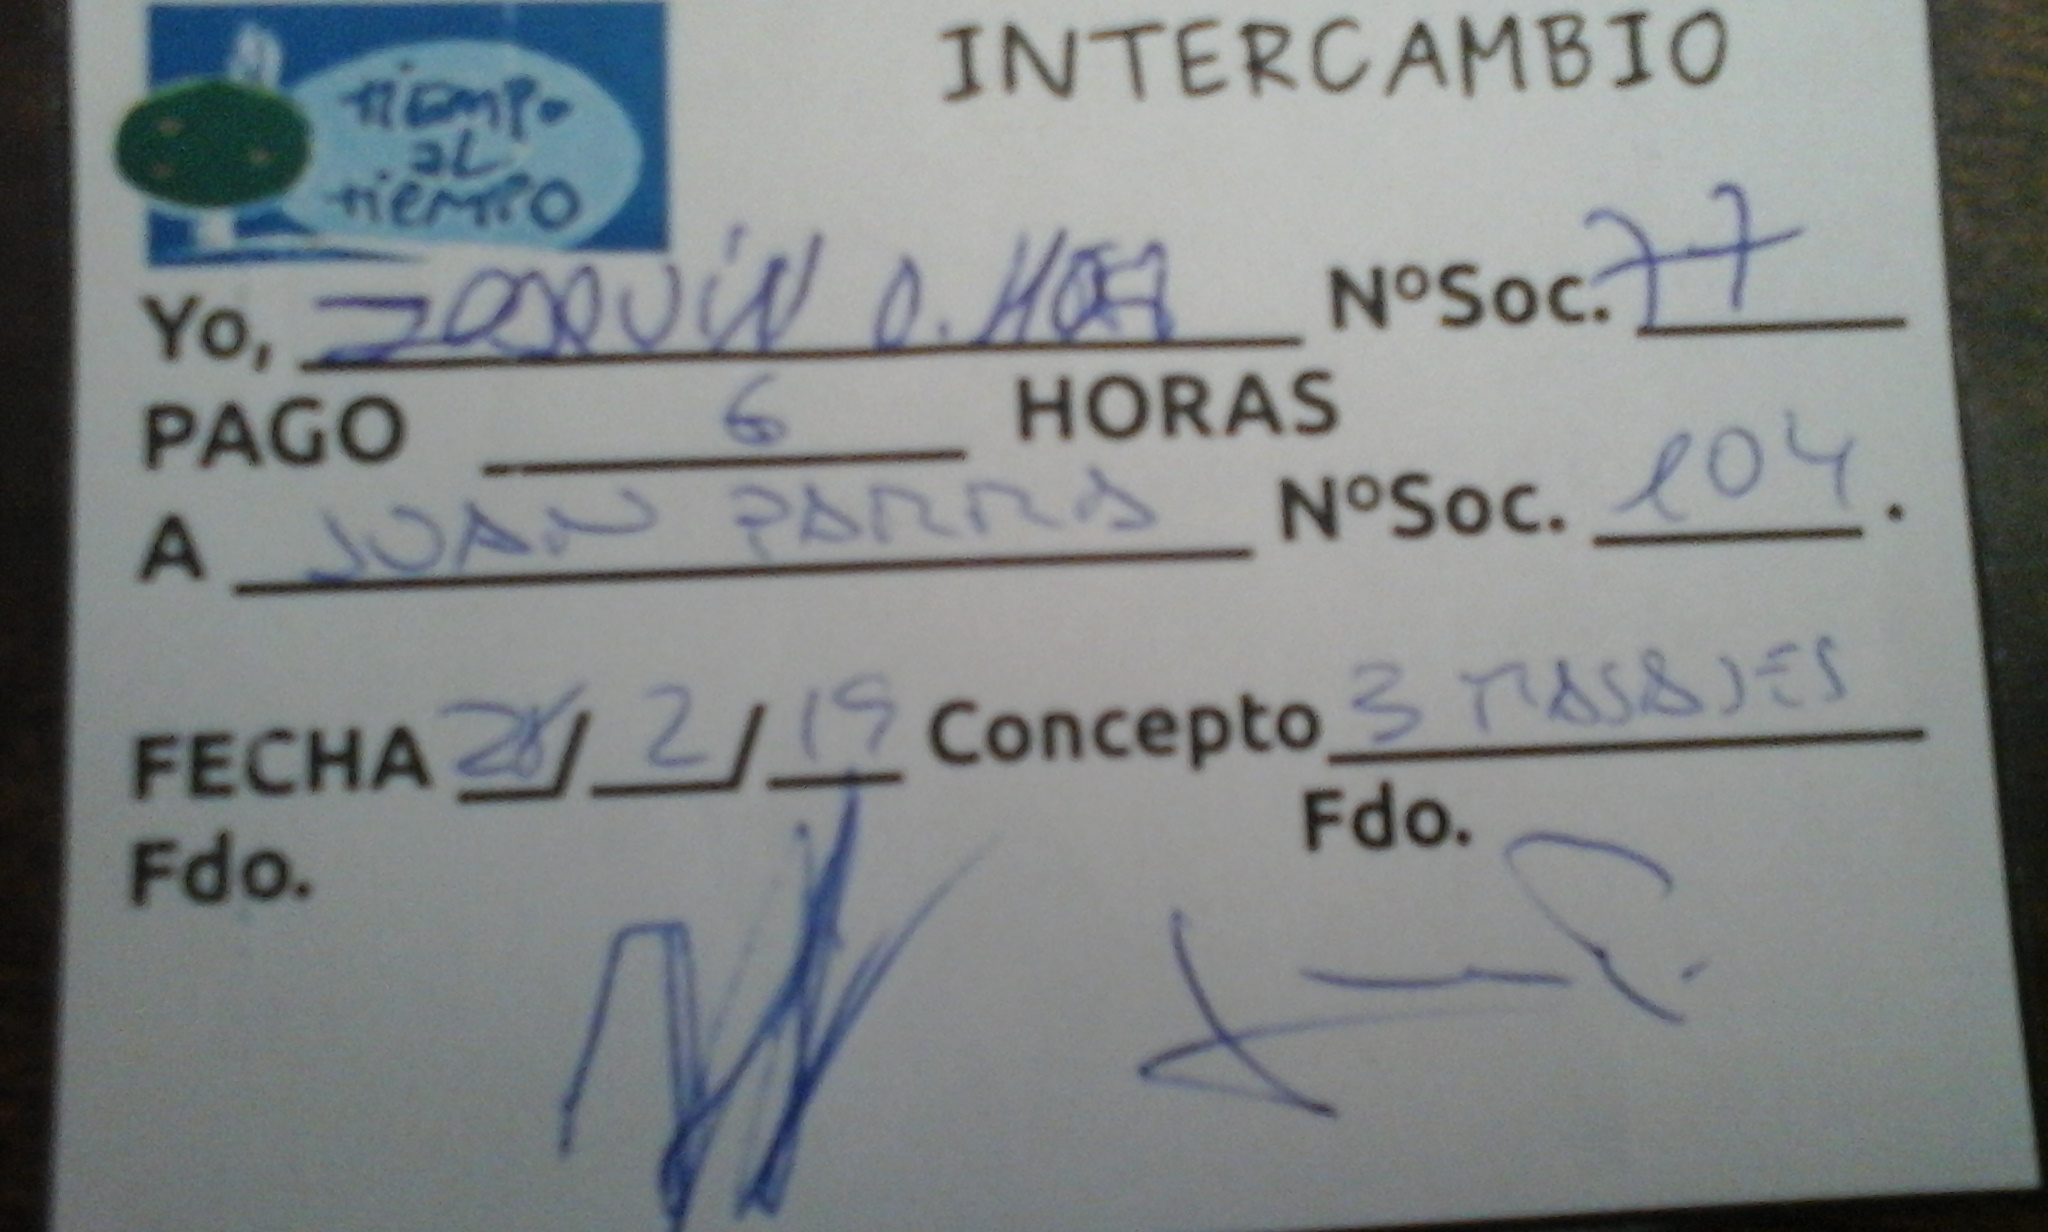 tiempo
al
tiempo
INTERCAMBIO
Yo, JOAQUIN O. NºSoc. 77
PAGO 6 HORAS
A JUAN PARRA NºSoc. 104.
FECHA /2/19 Concepto 3 MASAJES
Fdo. Fdo.